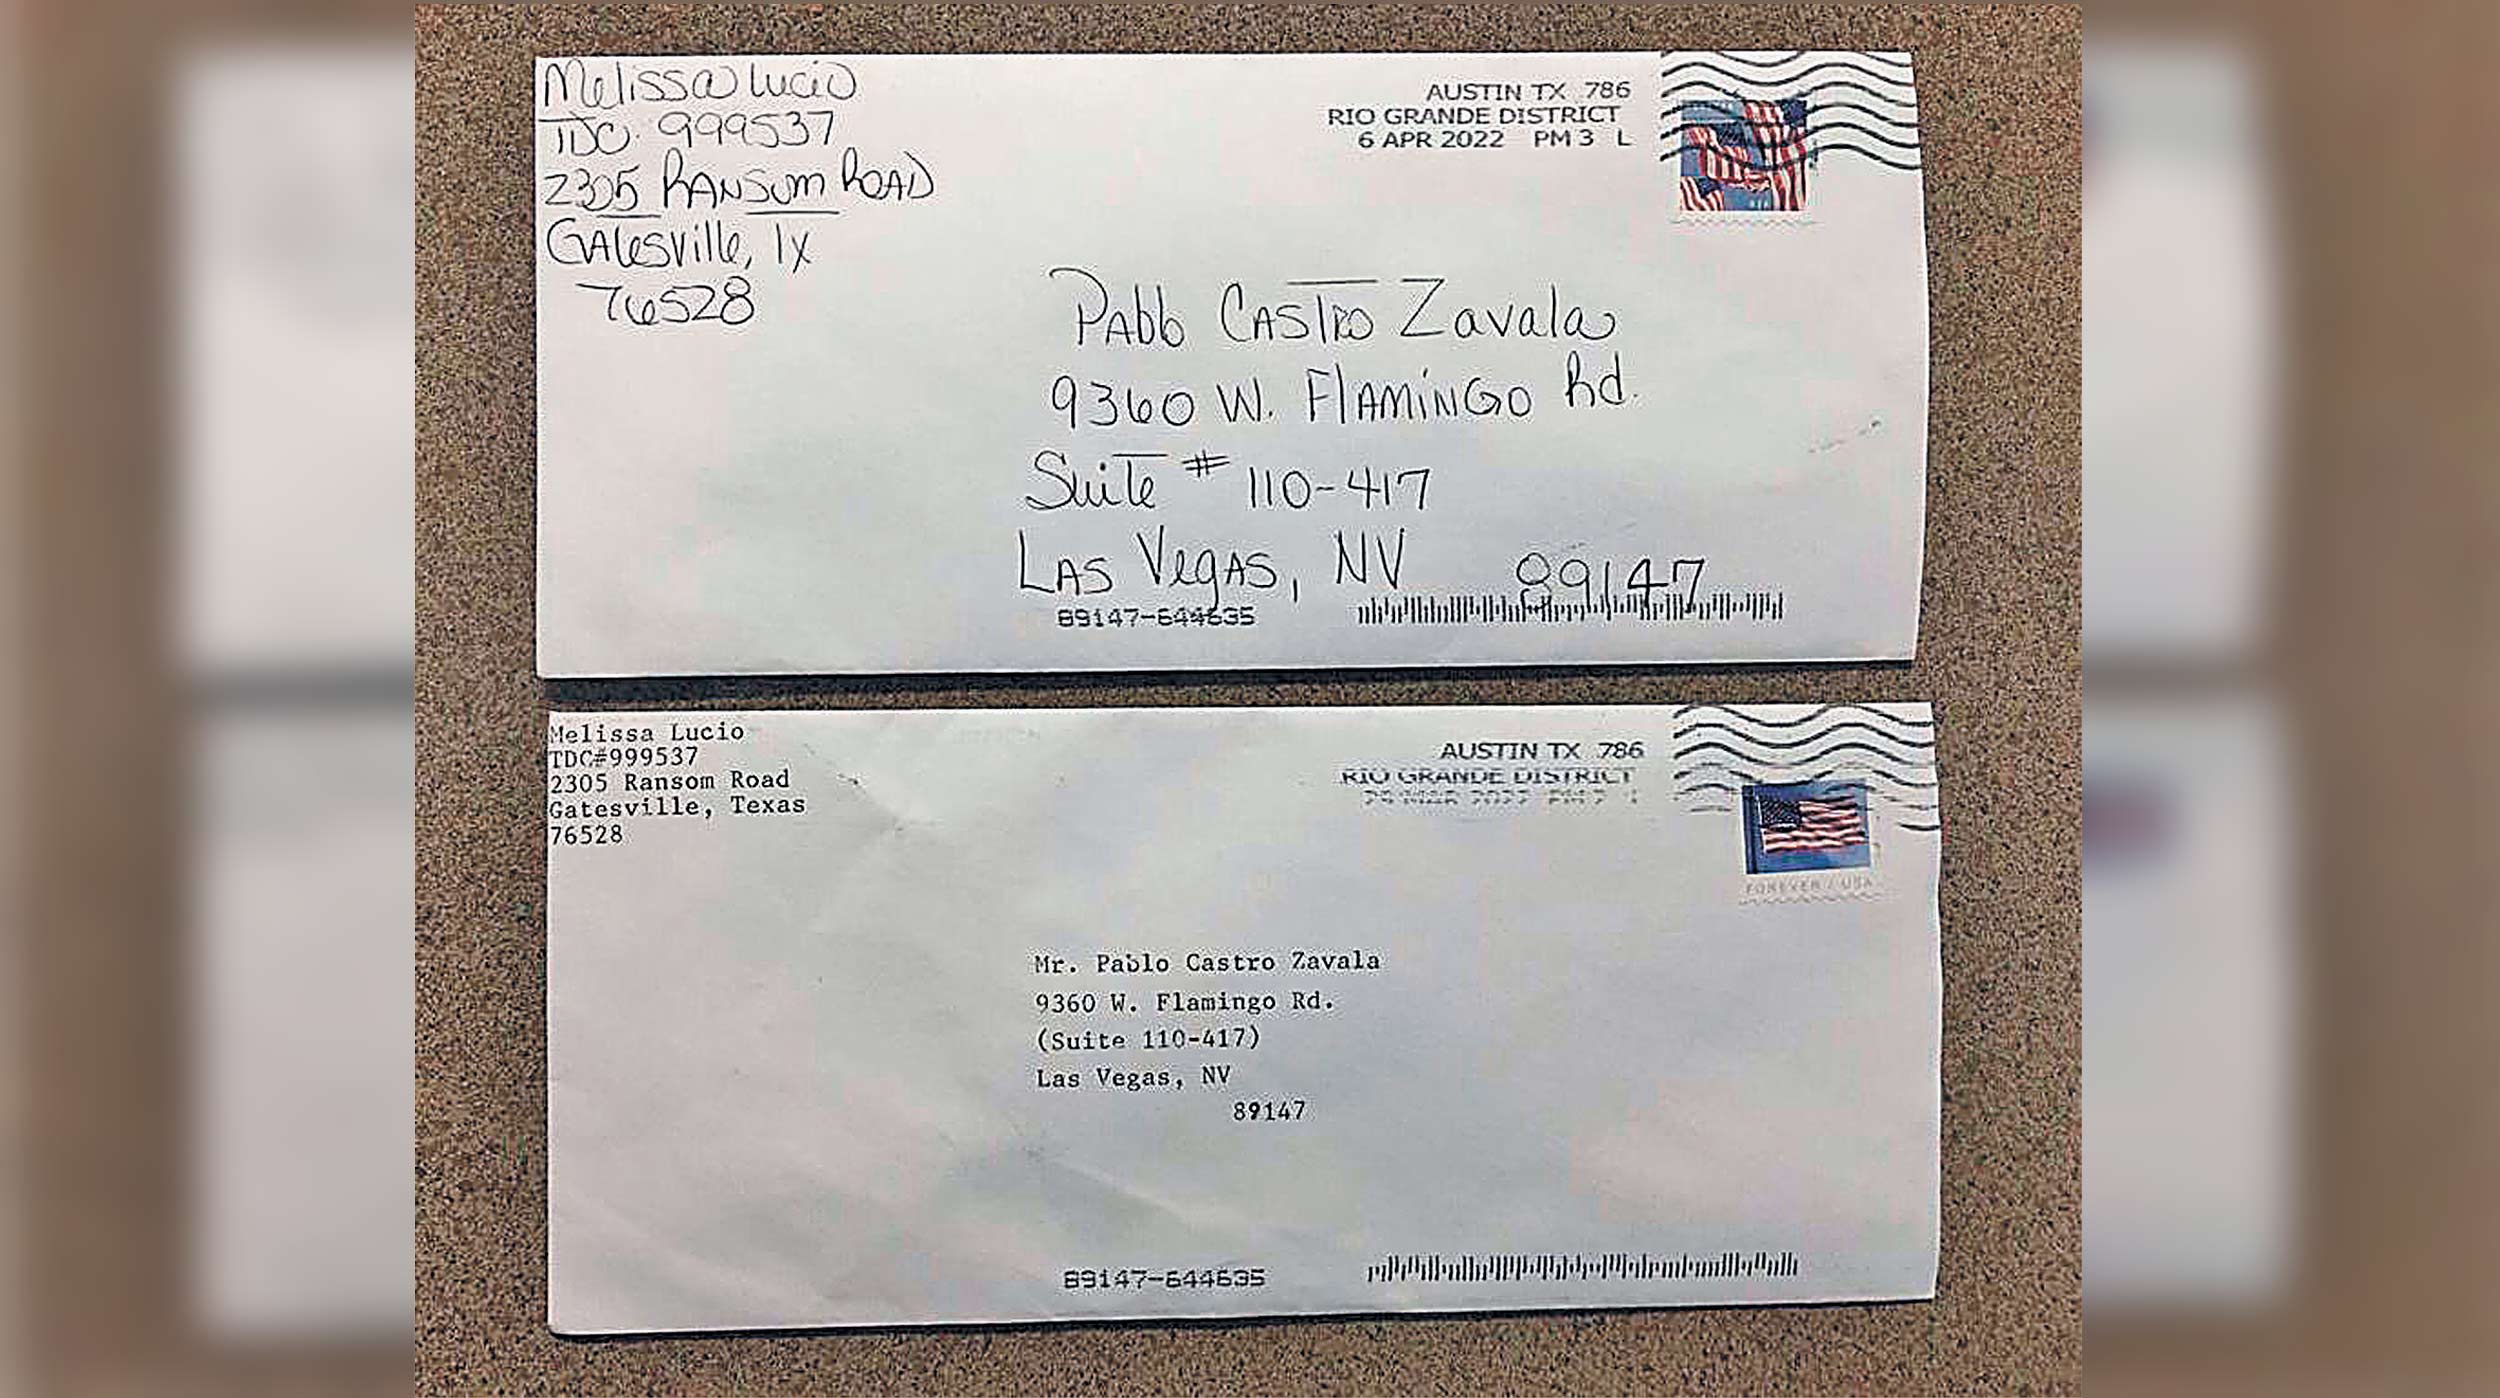 Melissa Lucio
TDC 999537
2305 Ransom Road
Gatesville, Tx
76528
AUSTIN TX 786
RIO GRANDE DISTRICT
6 APR 2022 PM 3 L
Pablo Castro Zavala
9360 W. Flamingo Rd.
Suite # 110-417
Las Vegas, NV 89147
89147-644635
Melissa Lucio
TDC#999537
2305 Ransom Road
Gatesville, Texas
76528
AUSTIN TX 786
RIO GRANDE DISTRICT
FOREVER / USA
Mr. Pablo Castro Zavala
9360 W. Flamingo Rd.
(Suite 110-417)
Las Vegas, NV
89147
89147-644635